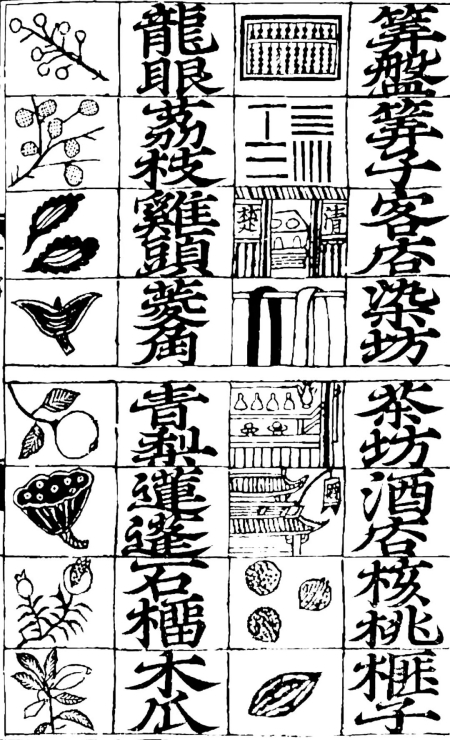 筭盤
筭子
客店
清
楚
染坊
茶坊
酒店
核桃
榧子
龍眼
荔枝
雞頭
菱角
青梨
蓮蓬
石榴
木瓜